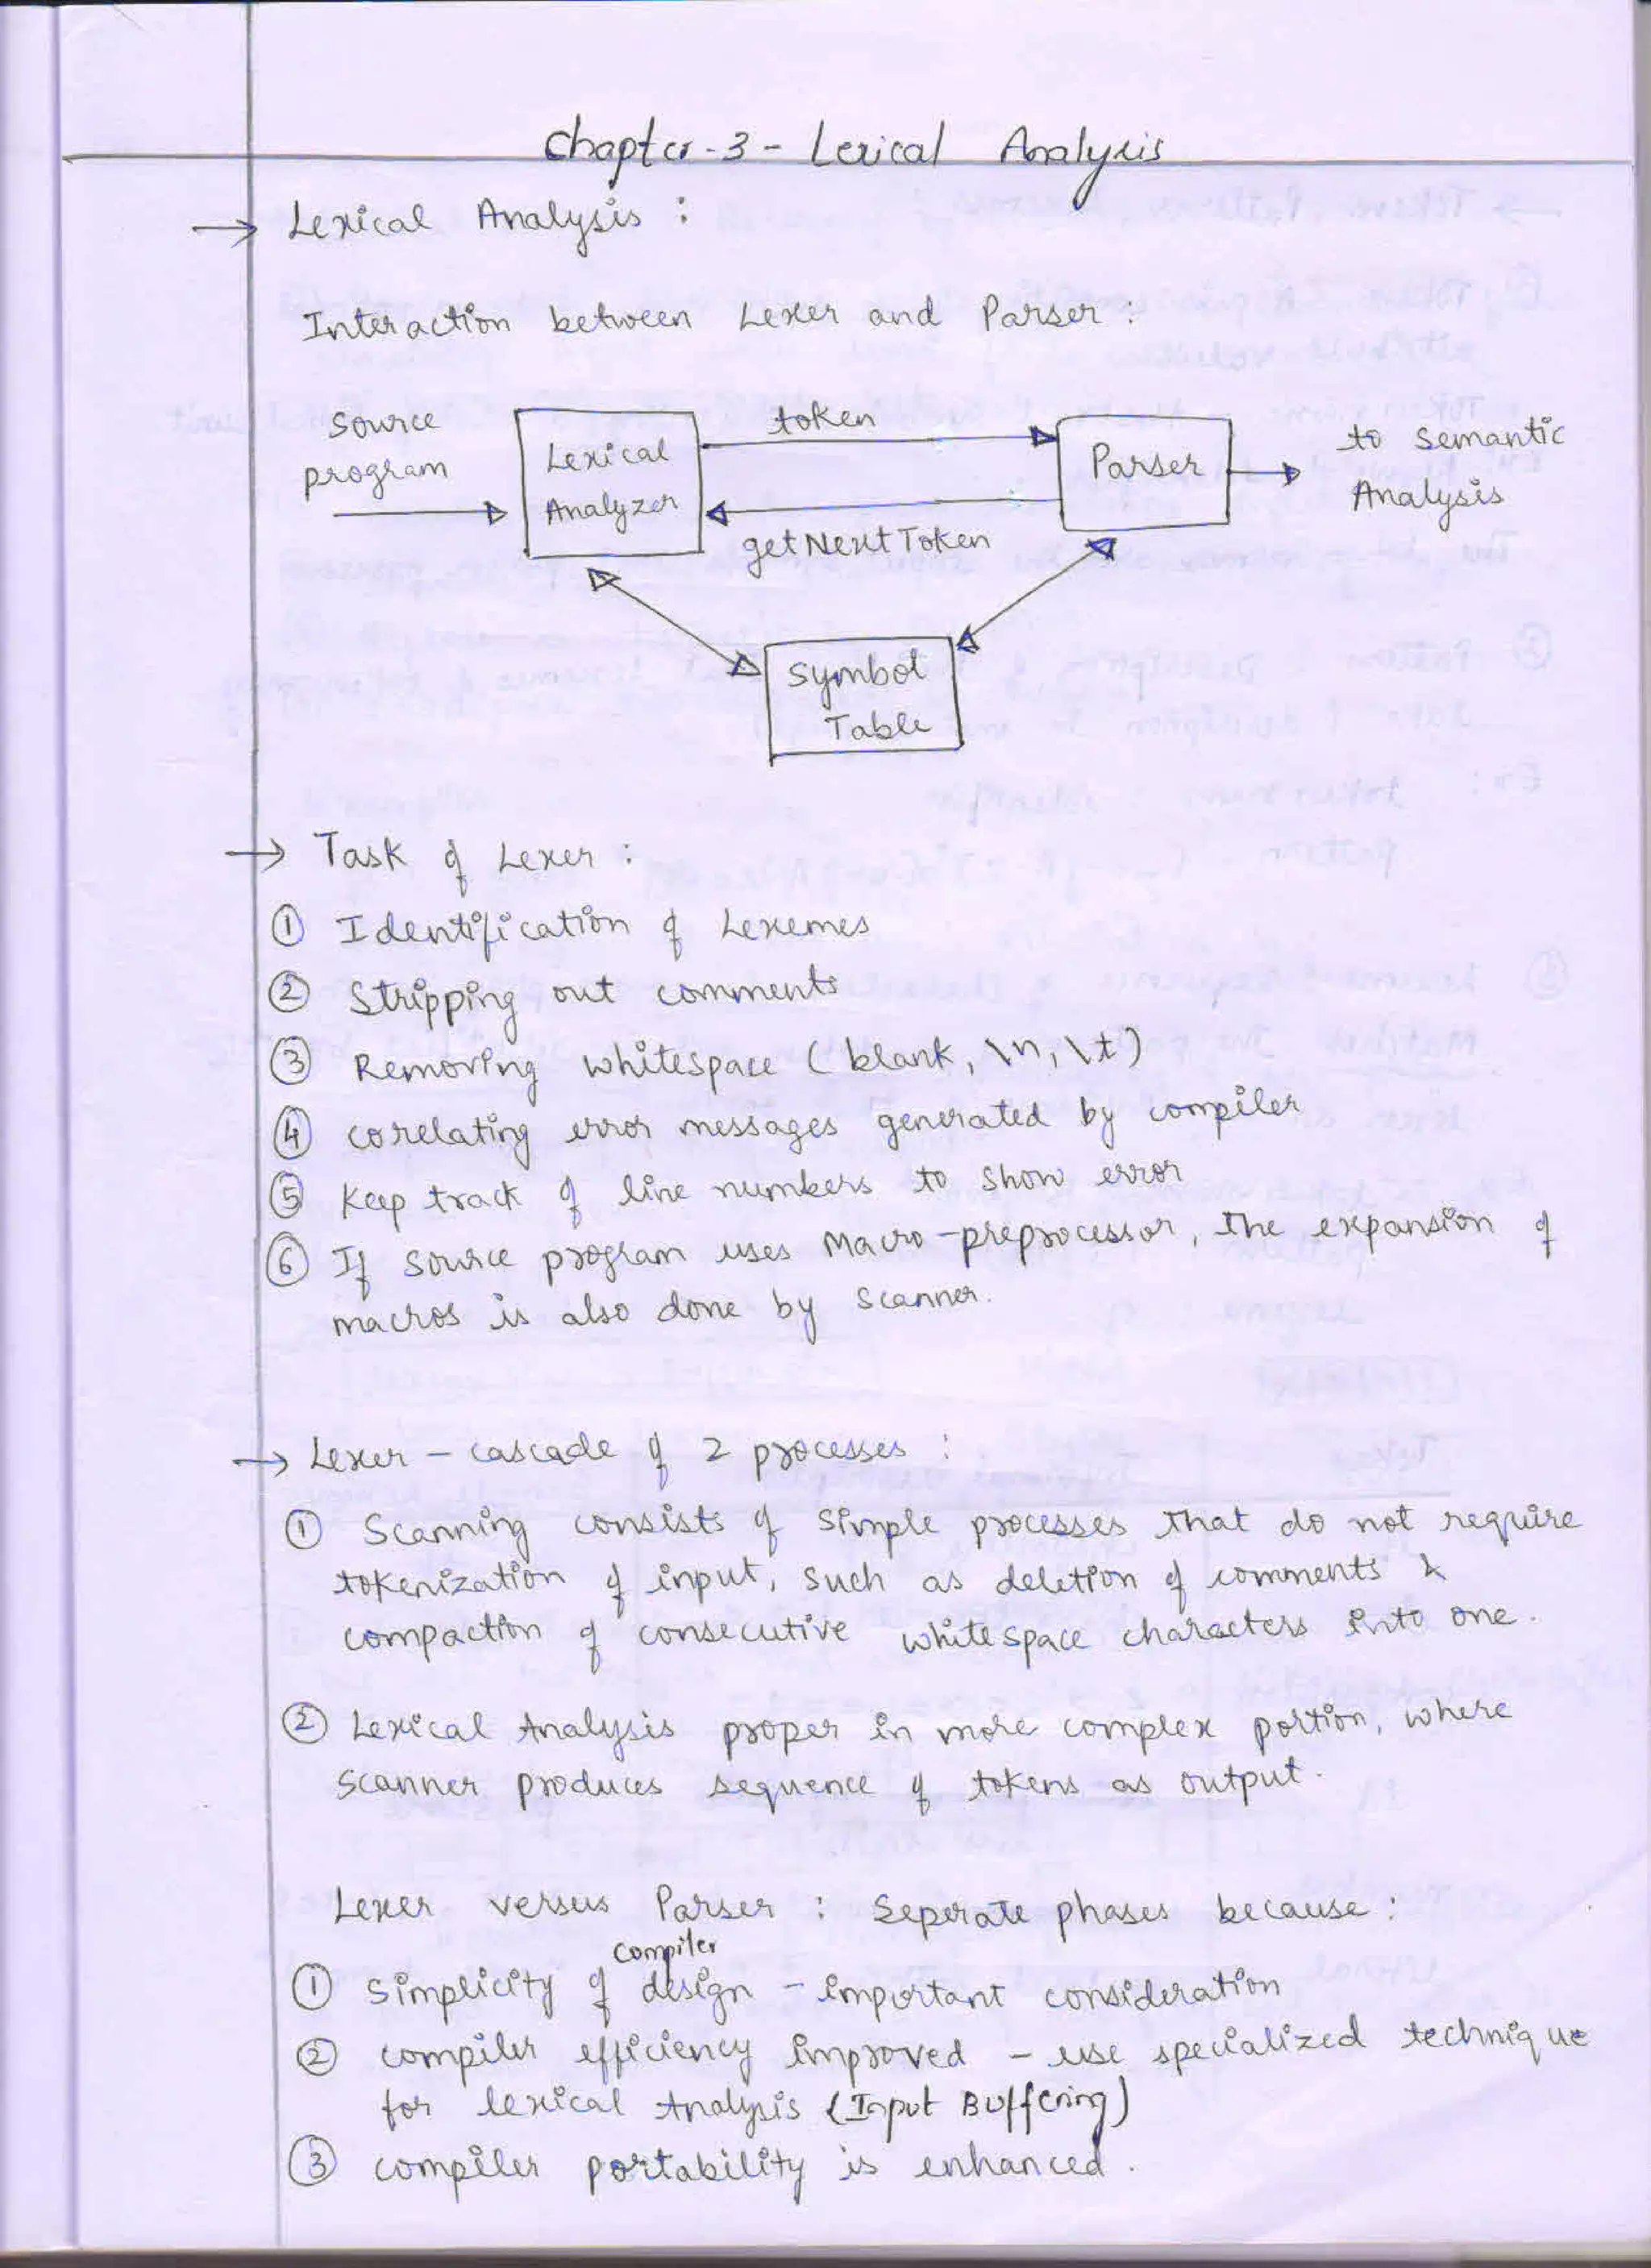 Chapter-3 - Lexical Analysis
→ Lexical Analysis :
Interaction between Lexer and Parser :
source
program
Lexical
Analyzer
token
getNextToken
Parser
to semantic
Analysis
Symbol
Table
→ Task of Lexer :
① Identification of Lexemes
② Stripping out comments
③ Removing whitespace ( blank, \n, \t )
④ corelating error messages generated by compiler
⑤ Keep track of line numbers to show error
⑥ If source program uses Macro-preprocessor, the expansion of
macros is also done by scanner.
→ Lexer - cascade of 2 processes :
① Scanning consists of simple processes that do not require
tokenization of input, such as deletion of comments &
compaction of consecutive whitespace characters into one.
② Lexical Analysis proper in more complex portion, where
scanner produces sequence of tokens as output.
Lexer versus Parser : Seperate phases because :
① Simplicity of compiler design - important consideration
② compiler efficiency improved - use specialized technique
for lexical Analysis (Input Buffering)
③ compiler portability is enhanced.